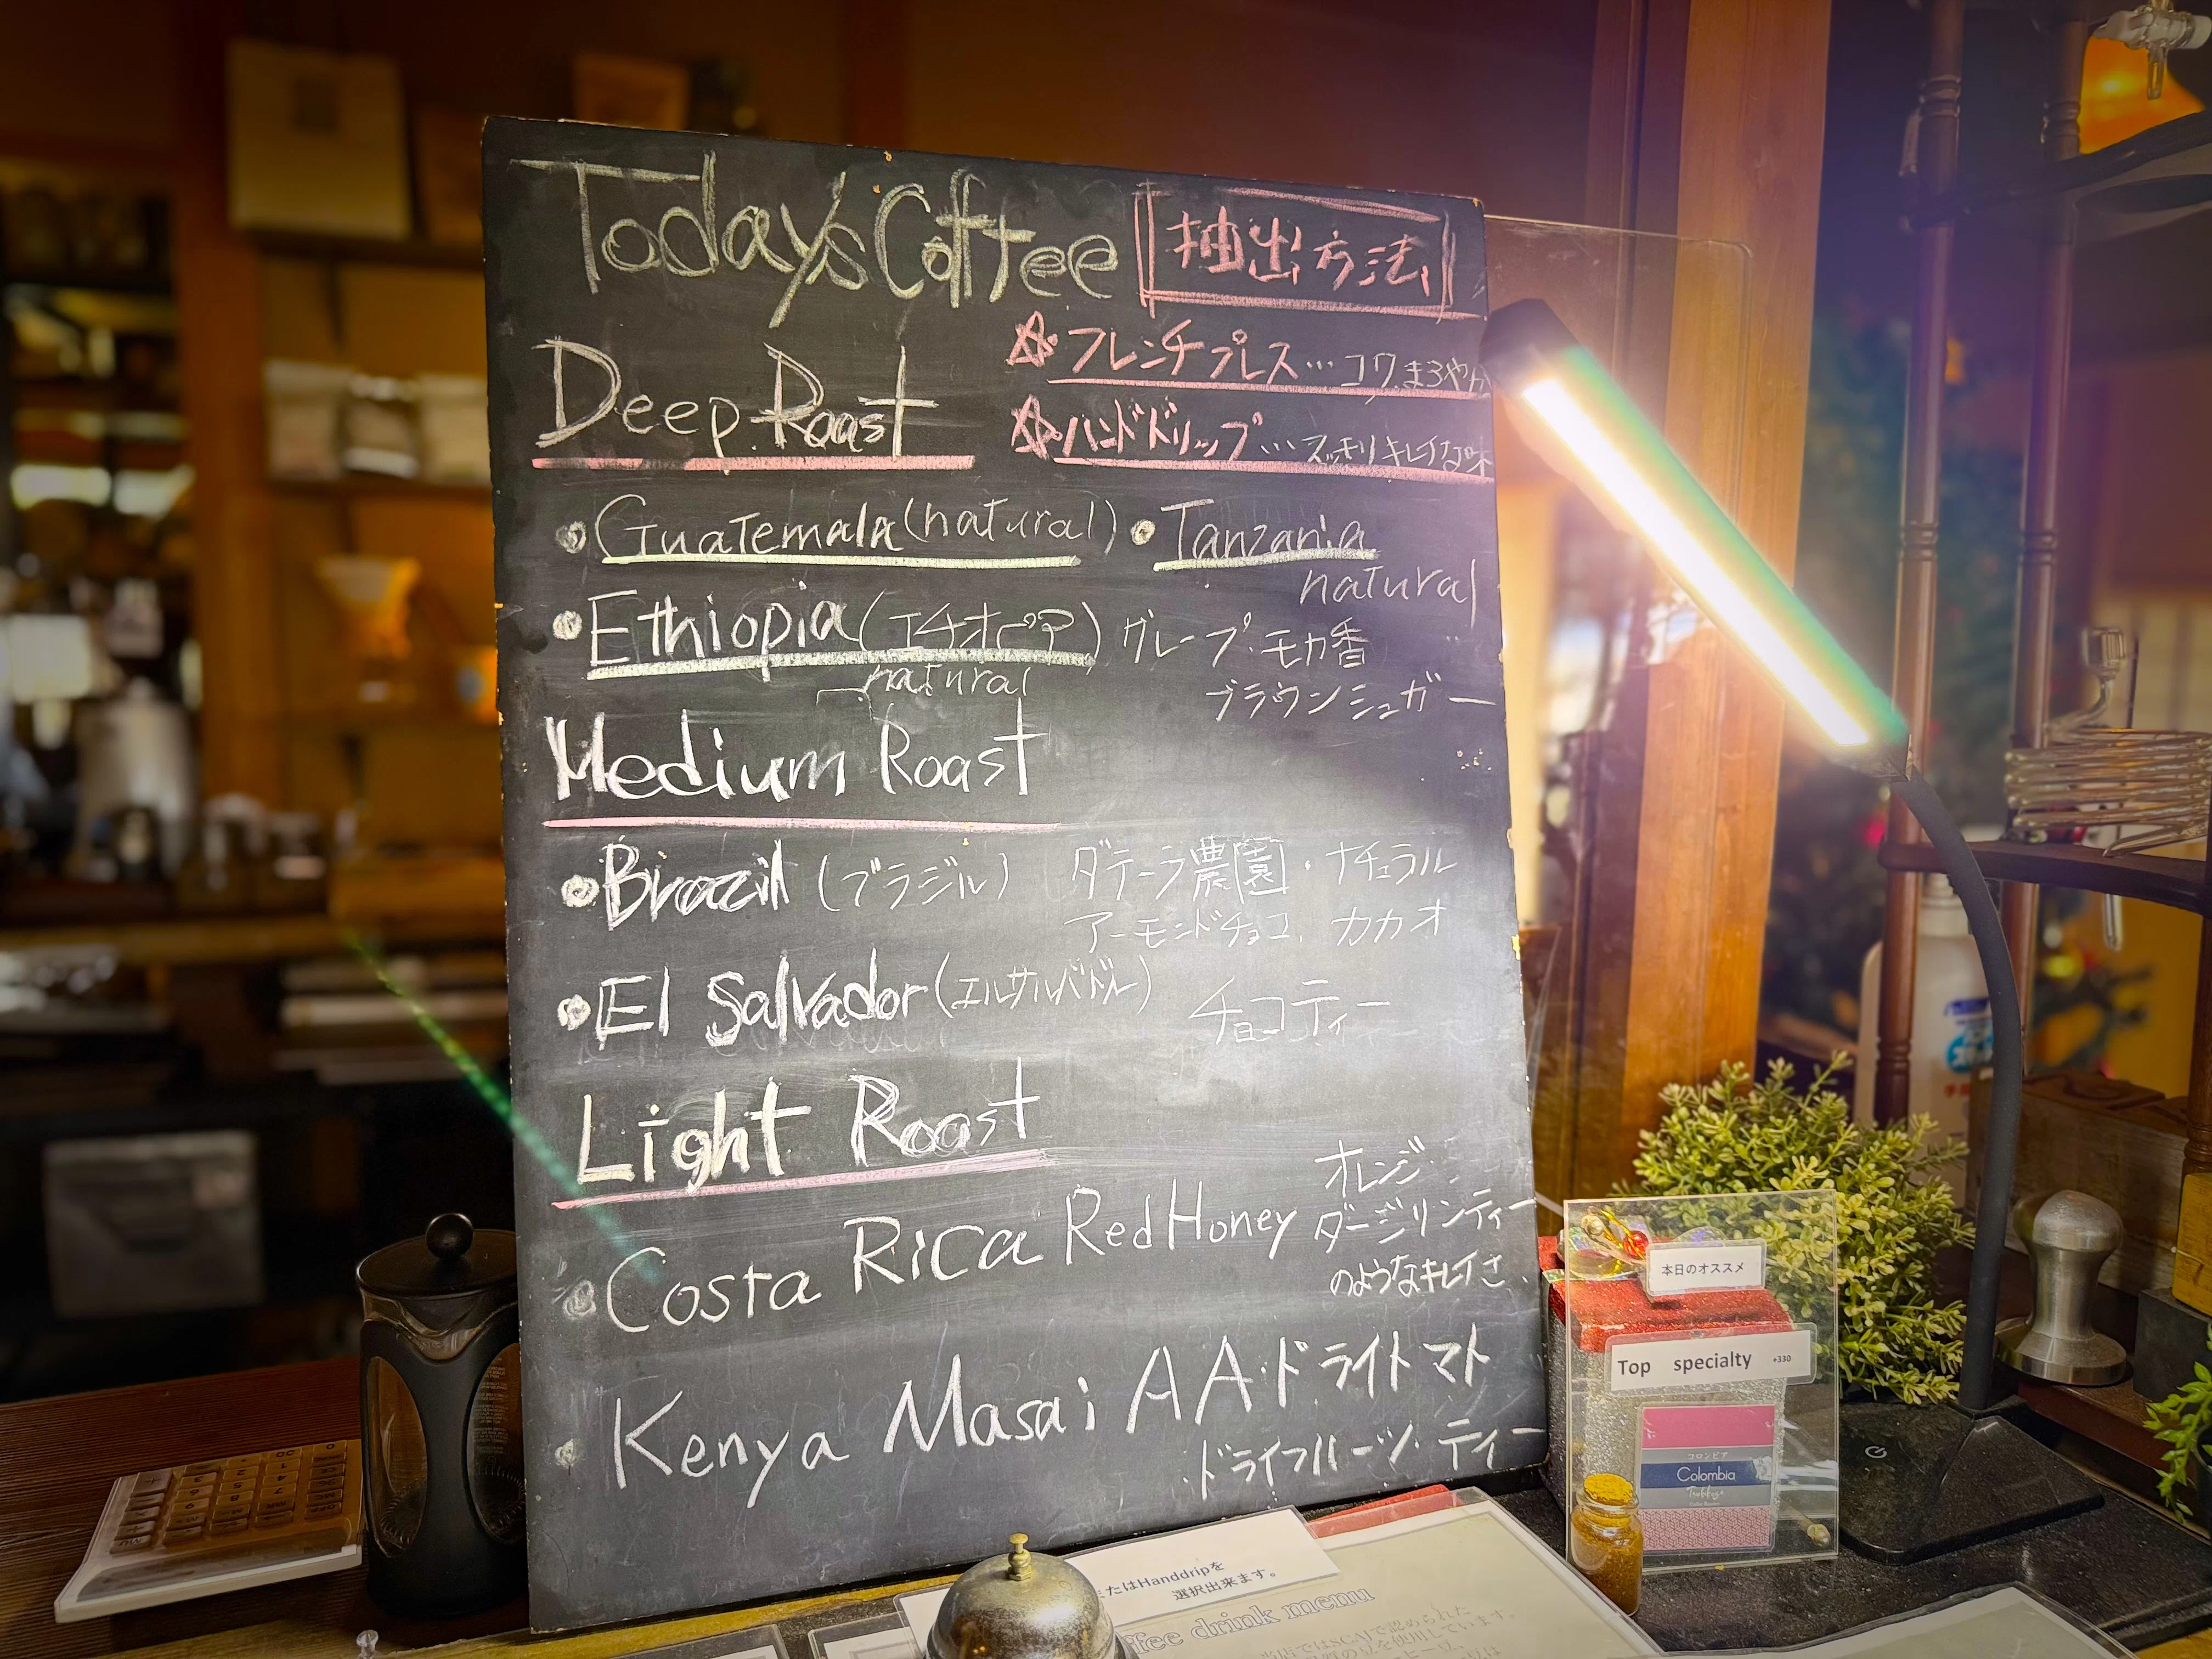 Today's Coffee
抽出方法
☆フレンチプレス…コク、まろやか
☆ハンドドリップ…スッキリキレイな味
Deep Roast
•Guatemala(natural)
•Tanzania
natural
•Ethiopia(エチオピア)
natural
グレープ・モカ香
ブラウンシュガー
Medium Roast
•Brazil(ブラジル)
ダテーラ農園・ナチュラル
アーモンドチョコ、カカオ
•El Salvador(エルサルバドル)
チョコティー
Light Roast
•Costa Rica Red Honey
オレンジ・
ダージリンティー
のようなキレイさ、
•Kenya Masai AA・ドライトマト
・ドライフルーツ・ティー
本日のオススメ
Top specialty +330
コロンビア
Colombia
またはHanddripを
選択出来ます。
drink menu